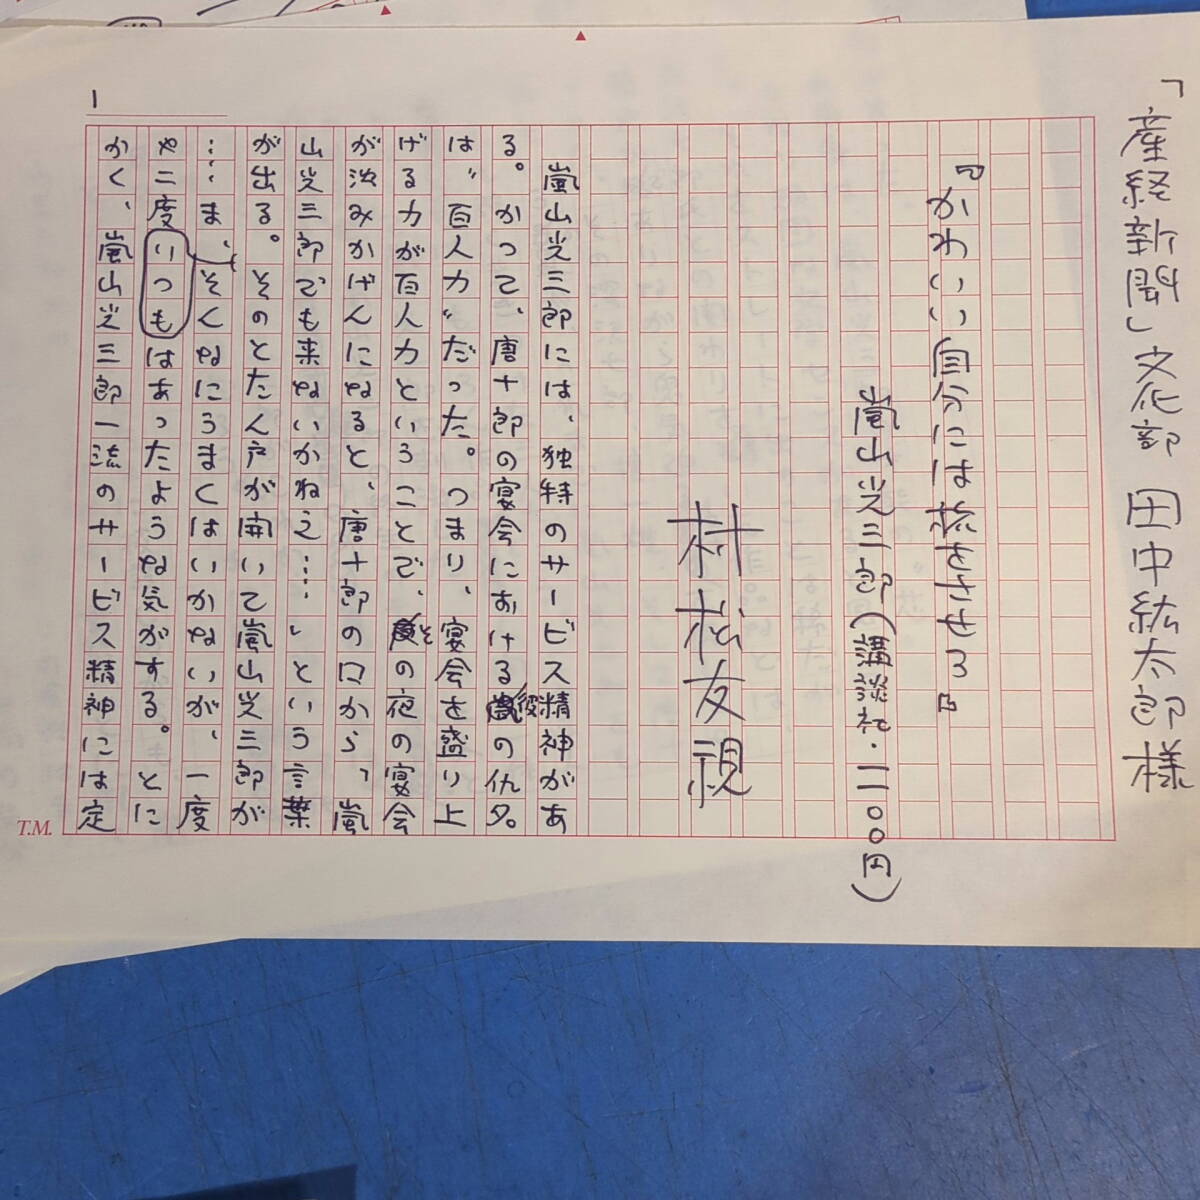 「産経新聞」文化部 田中紘太郎様
『かわいい自分には旅をさせろ』
嵐山光三郎(講談社・一一〇〇円)
村松友視
嵐山光三郎には、独特のサービス精神があ
る。かつて、唐十郎の宴会における彼の仇名
は〝百人力〟だった。つまり、宴会を盛り上
げる力が百人力ということで、その夜の宴会
が沈みかげんになると、唐十郎の口から、「嵐
山光三郎でも来ないかねえ……」という言葉
が出る。そのとたん戸が開いて嵐山光三郎が
……ま、そんなにうまくはいかないが、一度
や二度いつもはあったような気がする。とに
かく、嵐山光三郎一流のサービス精神には定
1
T.M.